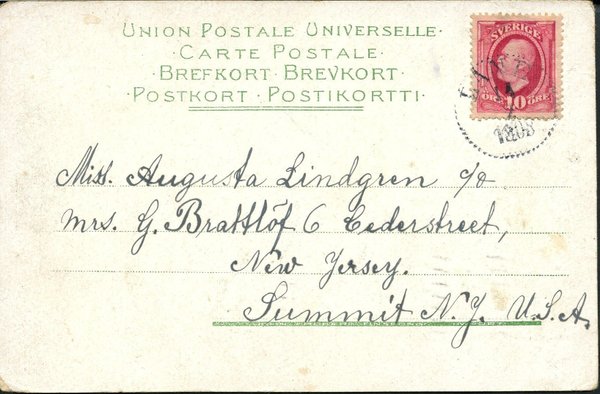 UNION POSTALE UNIVERSELLE·
·CARTE POSTALE·
·BREFKORT·BREVKORT·
·POSTKORT·POSTIKORTTI·
SVERIGE
10 ÖRE
Miss. Augusta Lindgren c/o
mrs. G. Brattlöf 6 Cederstreet,
New Jersey.
Summit N.J. U.S.A.